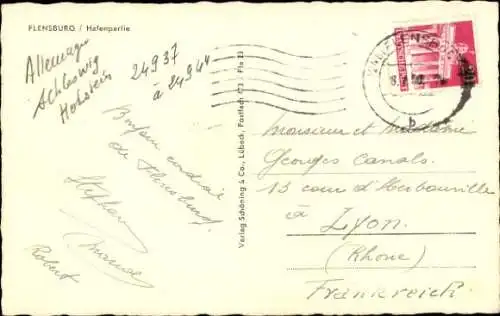 FLENSBURG / Hafenpartie
Allemagne
Schleswig
Holstein
24937
à 24944
Bonjour cordiale
de Flensburg.
Stephan
Robert
Verlag Schöning & Co., Lübeck, Postfach 673 / Fle 23
FLENSBURG
b
Monsieur et Madame
Georges Canals.
13 cour d'Herbouville
à
Lyon.
(Rhone)
Frankreich.